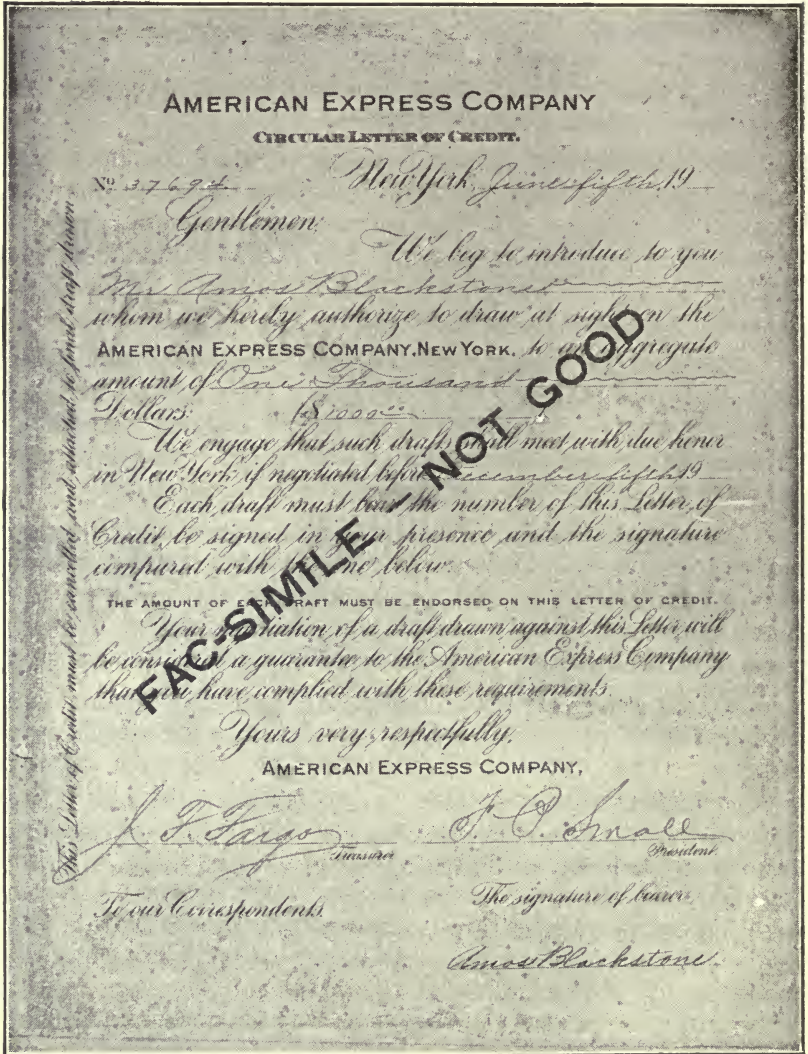 AMERICAN EXPRESS COMPANY
CIRCULAR LETTER OF CREDIT.
No 37694 New York, June fifth 19
Gentlemen:
We beg to introduce to you
Mr Amos Blackstone
whom we hereby authorize to draw at sight on the
AMERICAN EXPRESS COMPANY, NEW YORK, to an aggregate
amount of One Thousand
Dollars. ($1000.00
We engage that such drafts shall meet with due honor
in New York if negotiated before December fifth 19
Each draft must bear the number of this Letter of
Credit, be signed in your presence and the signature
compared with the one below.
THE AMOUNT OF EACH DRAFT MUST BE ENDORSED ON THIS LETTER OF CREDIT.
Your negotiation of a draft drawn against this Letter will
be considered a guarantee to the American Express Company
that you have complied with these requirements.
Yours very respectfully,
AMERICAN EXPRESS COMPANY,
J. F. Fargo F. P. Small
Treasurer President.
To our Correspondents. The signature of bearer
Amos Blackstone.
This Letter of Credit must be cancelled and attached to final draft drawn
FAC-SIMILE - NOT GOOD